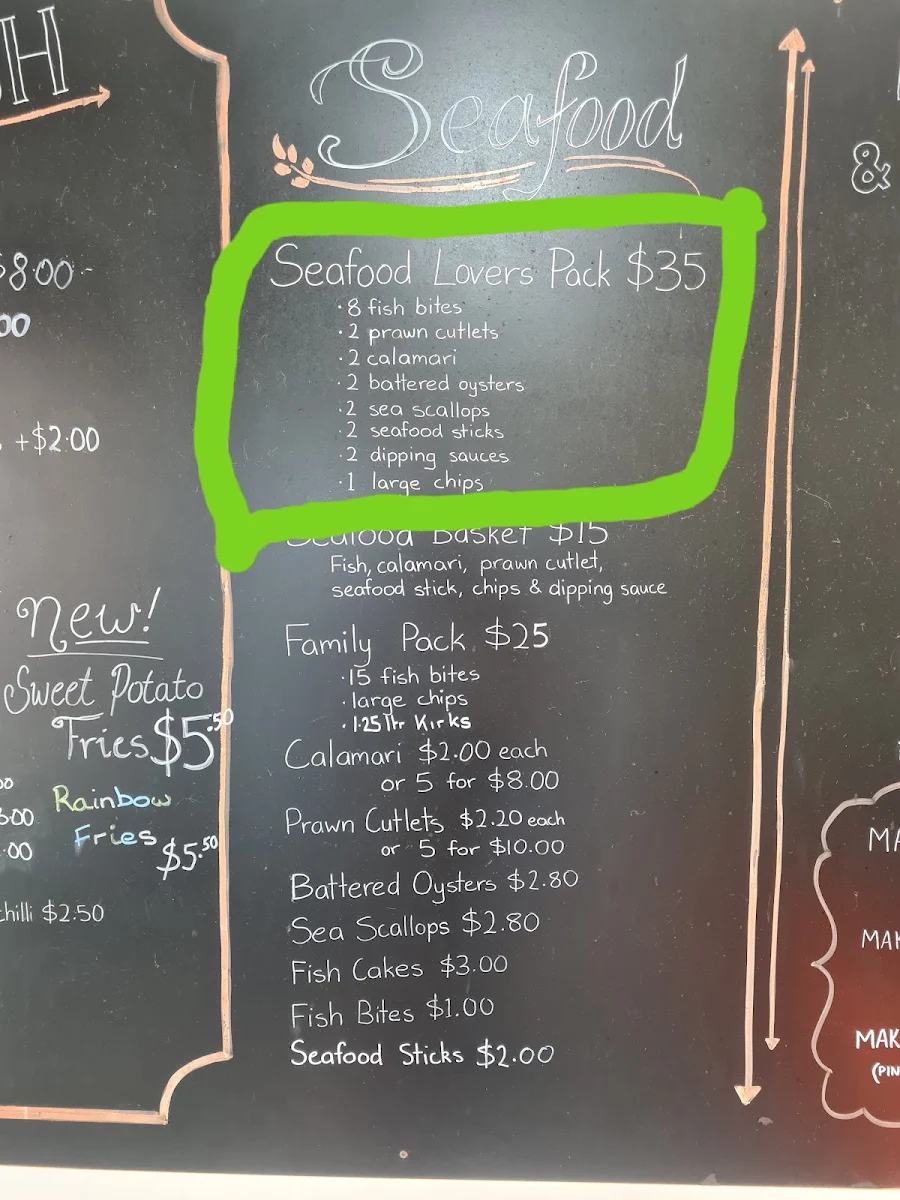 H
$8.00-
00
+$2.00
New!
Sweet Potato
Fries $5.50
Rainbow
Fries
$5.50
00
.00
chilli $2.50
Seafood
Seafood Lovers Pack $35
·8 fish bites
·2 prawn cutlets
·2 calamari
·2 battered oysters
·2 sea scallops
·2 seafood sticks
·2 dipping sauces
·1 large chips
Seafood Basket $15
Fish, calamari, prawn cutlet,
seafood stick, chips & dipping sauce
Family Pack $25
·15 fish bites
·large chips
·1·25ltr Kirks
Calamari $2.00 each
or 5 for $8.00
Prawn Cutlets $2.20 each
or 5 for $10.00
Battered Oysters $2.80
Sea Scallops $2.80
Fish Cakes $3.00
Fish Bites $1.00
Seafood Sticks $2.00
&
MA
MAK
MAK
(PIN